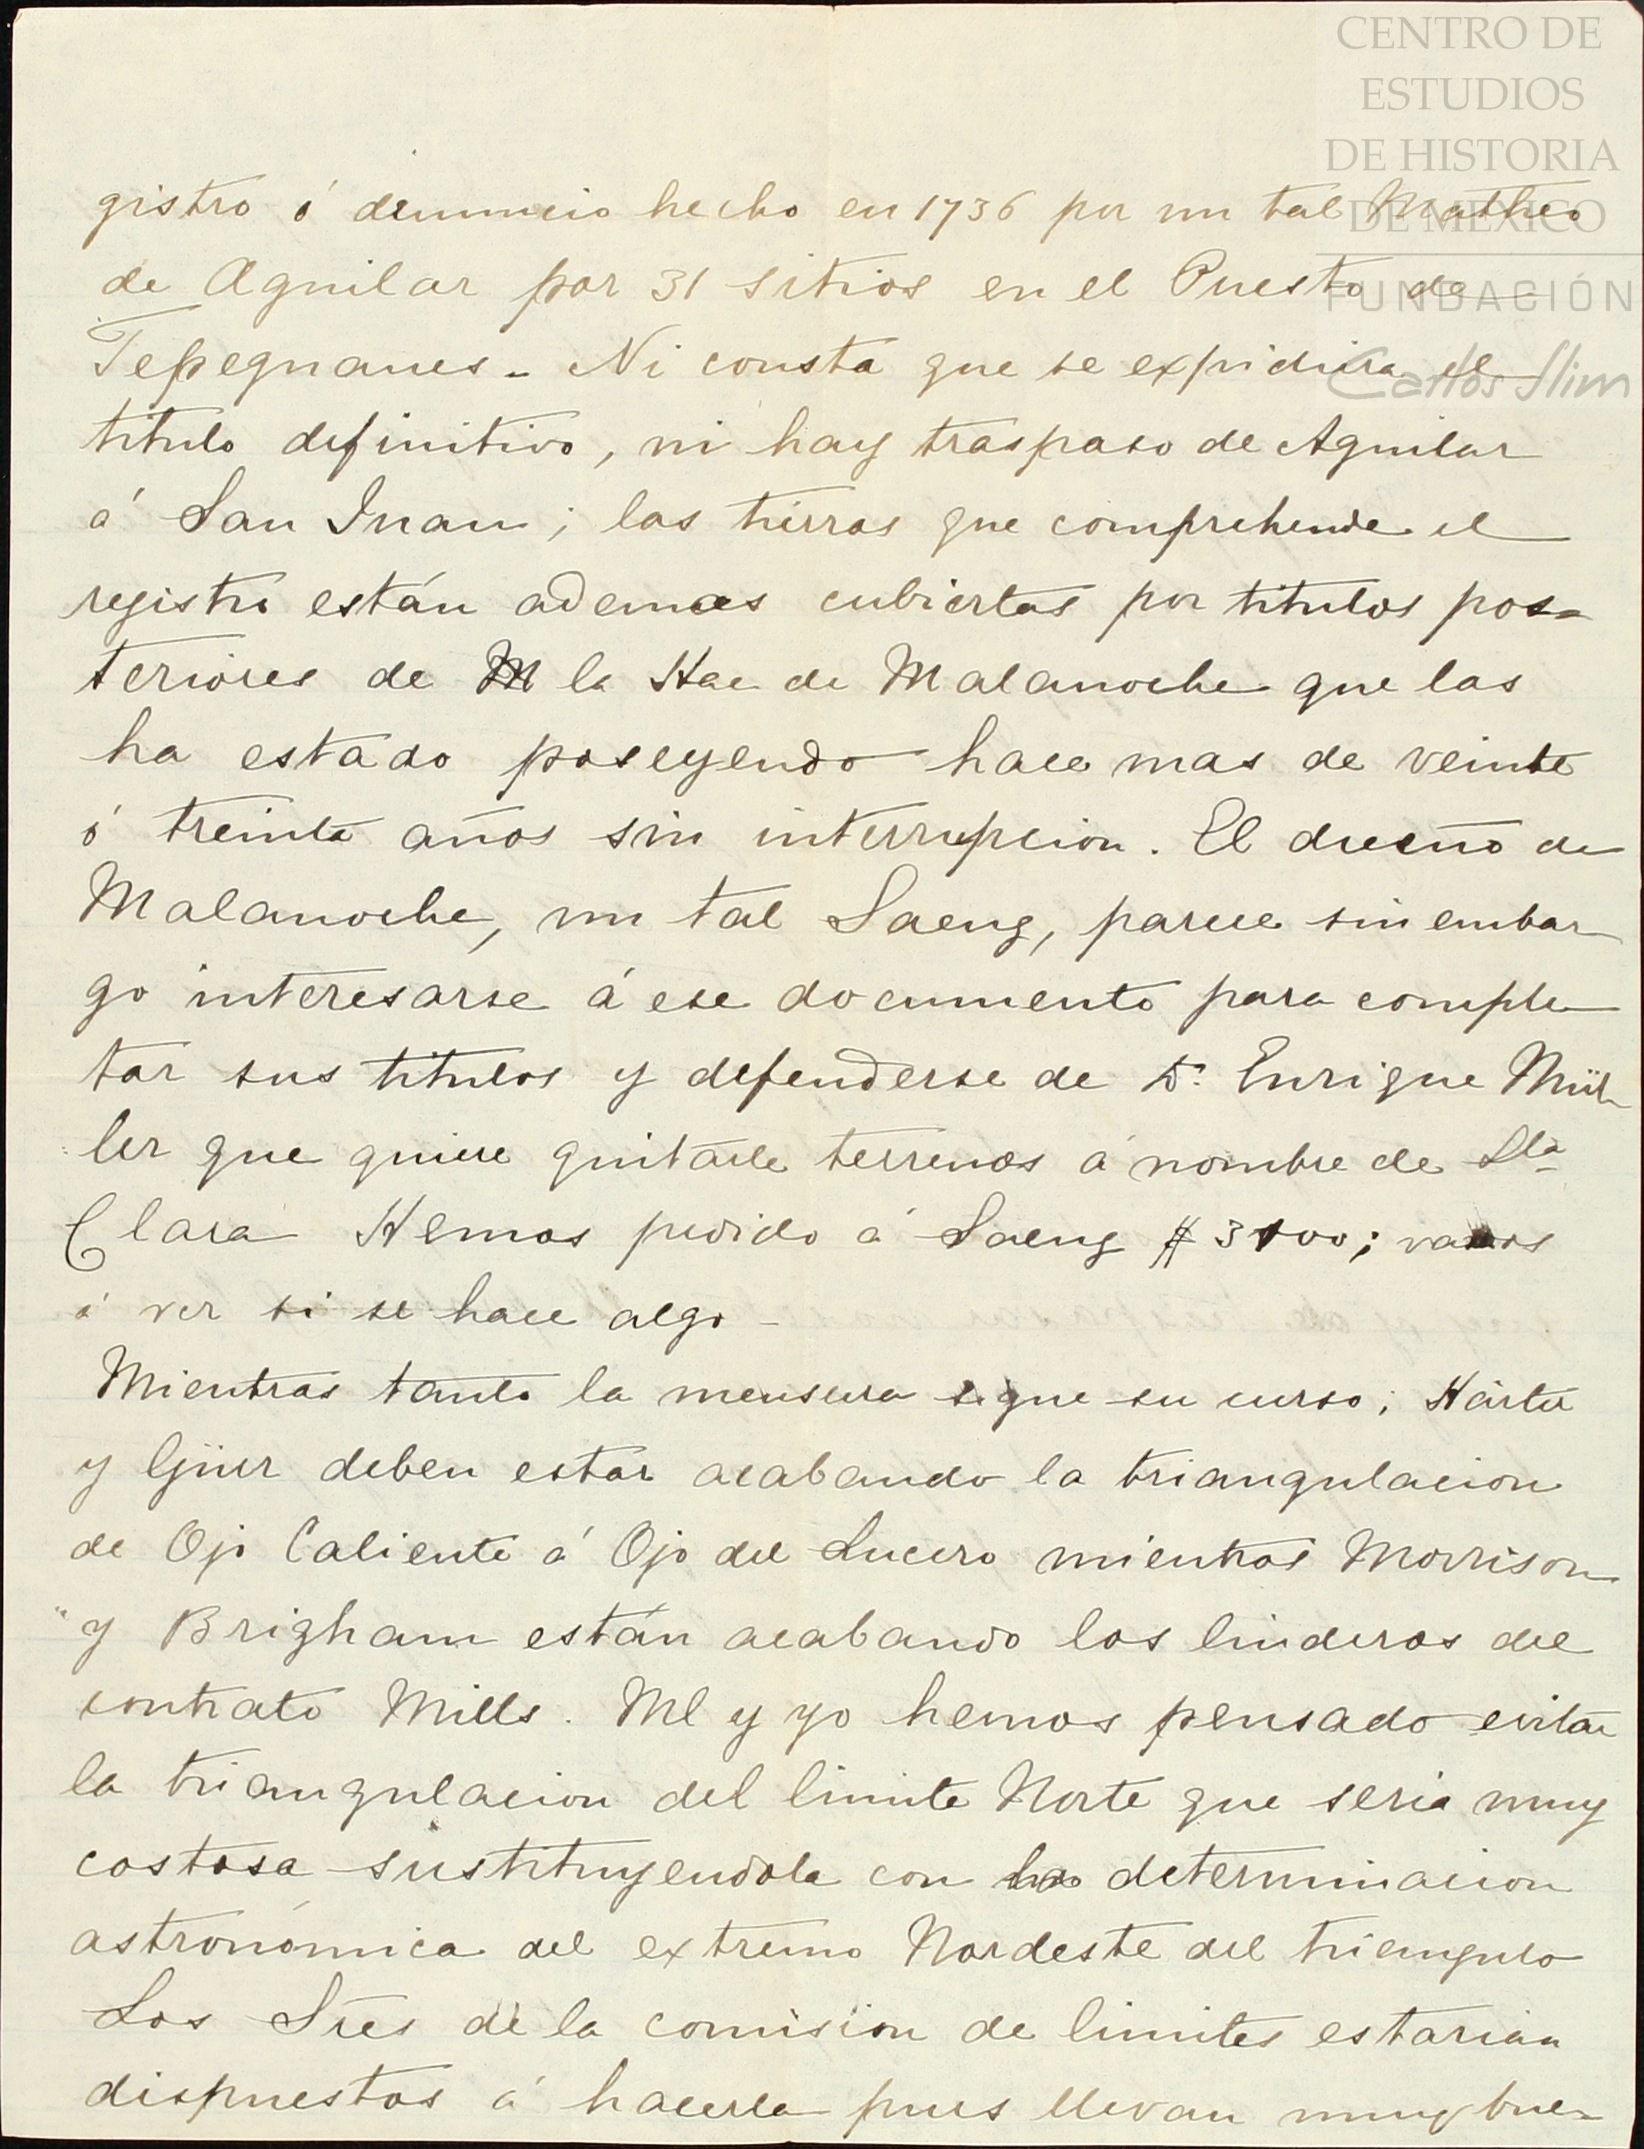 CENTRO DE
ESTUDIOS
DE HISTORIA
DE MEXICO
FUNDACIÓN
Carlos Slim
gistro ó denuncio hecho en 1736 por un tal Matheo
de Aguilar por 31 sitios en el Puesto de
Tepeguanes. Ni consta que se expidiera el
titulo definitivo, ni hay traspaso de Aguilar
á San Juan; las tierras que comprehende el
registro están ademas cubiertas por titulos pos-
teriores de la Hae de Malanoche que las
ha estado poseyendo hace mas de veinte
ó treinta años sin interrupcion. El dueño de
Malanoche, un tal Saenz, parece sin embar-
go interesarse á ese documento para comple-
tar sus titulos y defenderse de Dn. Enrique Mül-
ler que quiere quitarle terrenos á nombre de Sta
Clara Hemos pedido á Saenz $3100; vamos
á ver si se hace algo -
Mientras tanto la mensura sigue su curso;
y deben estar acabando la triangulacion
de Ojo Caliente á Ojo del Lucero mientras Morrison
y Brigham están acabando los linderos del
contrato Mills. Ml y yo hemos pensado evitar
la triangulacion del limite Norte que seria muy
costosa sustituyendola con la determinacion
astronómica del extremo Nordeste del triangulo
Los Sres de la comision de limites estarian
dispuestos á hacerla pues llevan muy bue-